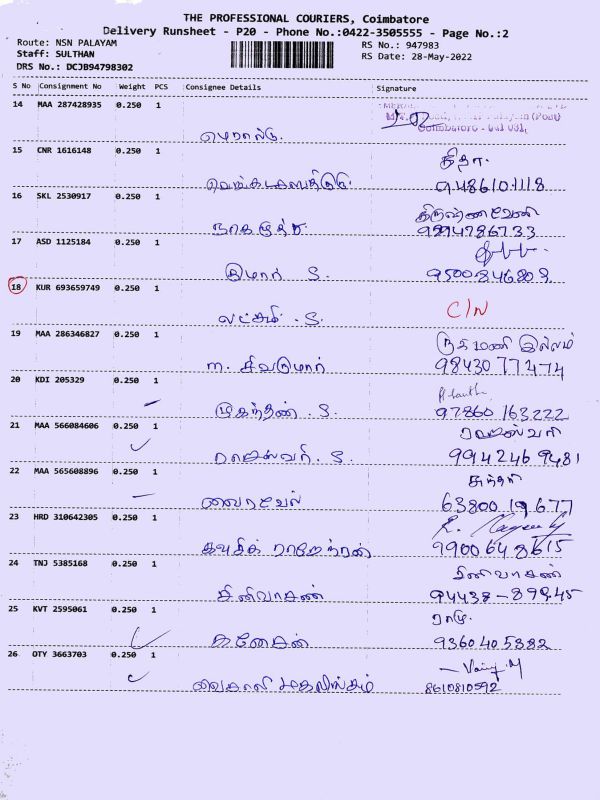 THE PROFESSIONAL COURIERS, Coimbatore
Delivery Runsheet - P20 - Phone No.:0422-3505555 - Page No.:2
Route: NSN PALAYAM
RS No.: 947983
Staff: SULTHAN
RS Date: 28-May-2022
DRS No.: DCJB94798302
S No Consignment No Weight PCS Consignee Details Signature
14 MAA 287428935 0.250 1
15 CNR 1616148 0.250 1 நிதா.
9486101118
16 SKL 2530917 0.250 1
நாகமுத்து 9994786733
17 ASD 1125184 0.250 1
குமார் S. 9500846808
18 KUR 693659749 0.250 1 C/N
லட்சுமி .S.
19 MAA 286346827 0.250 1 மணி இல்லம்
m. சிவகுமார் 98430 77474
20 KDI 205329 0.250 1
முகந்தன் .S. 97860 163222
21 MAA 566084606 0.250 1
ராஜேஸ்வரி. S. 9942469481
22 MAA 565608896 0.250 1
வைரவேல் 63800 19677
23 HRD 310642305 0.250 1
கவுசிக் ராஜேந்ரன் 9900648615
24 TNJ 5385168 0.250 1 சினிவாசன்
சினிவாசன் 94438-89845
25 KVT 2595061 0.250 1 ராமு.
கனேசன் 9360405382
26 OTY 3663703 0.250 1
வைசாலி மகாலிங்கம் 8610810592